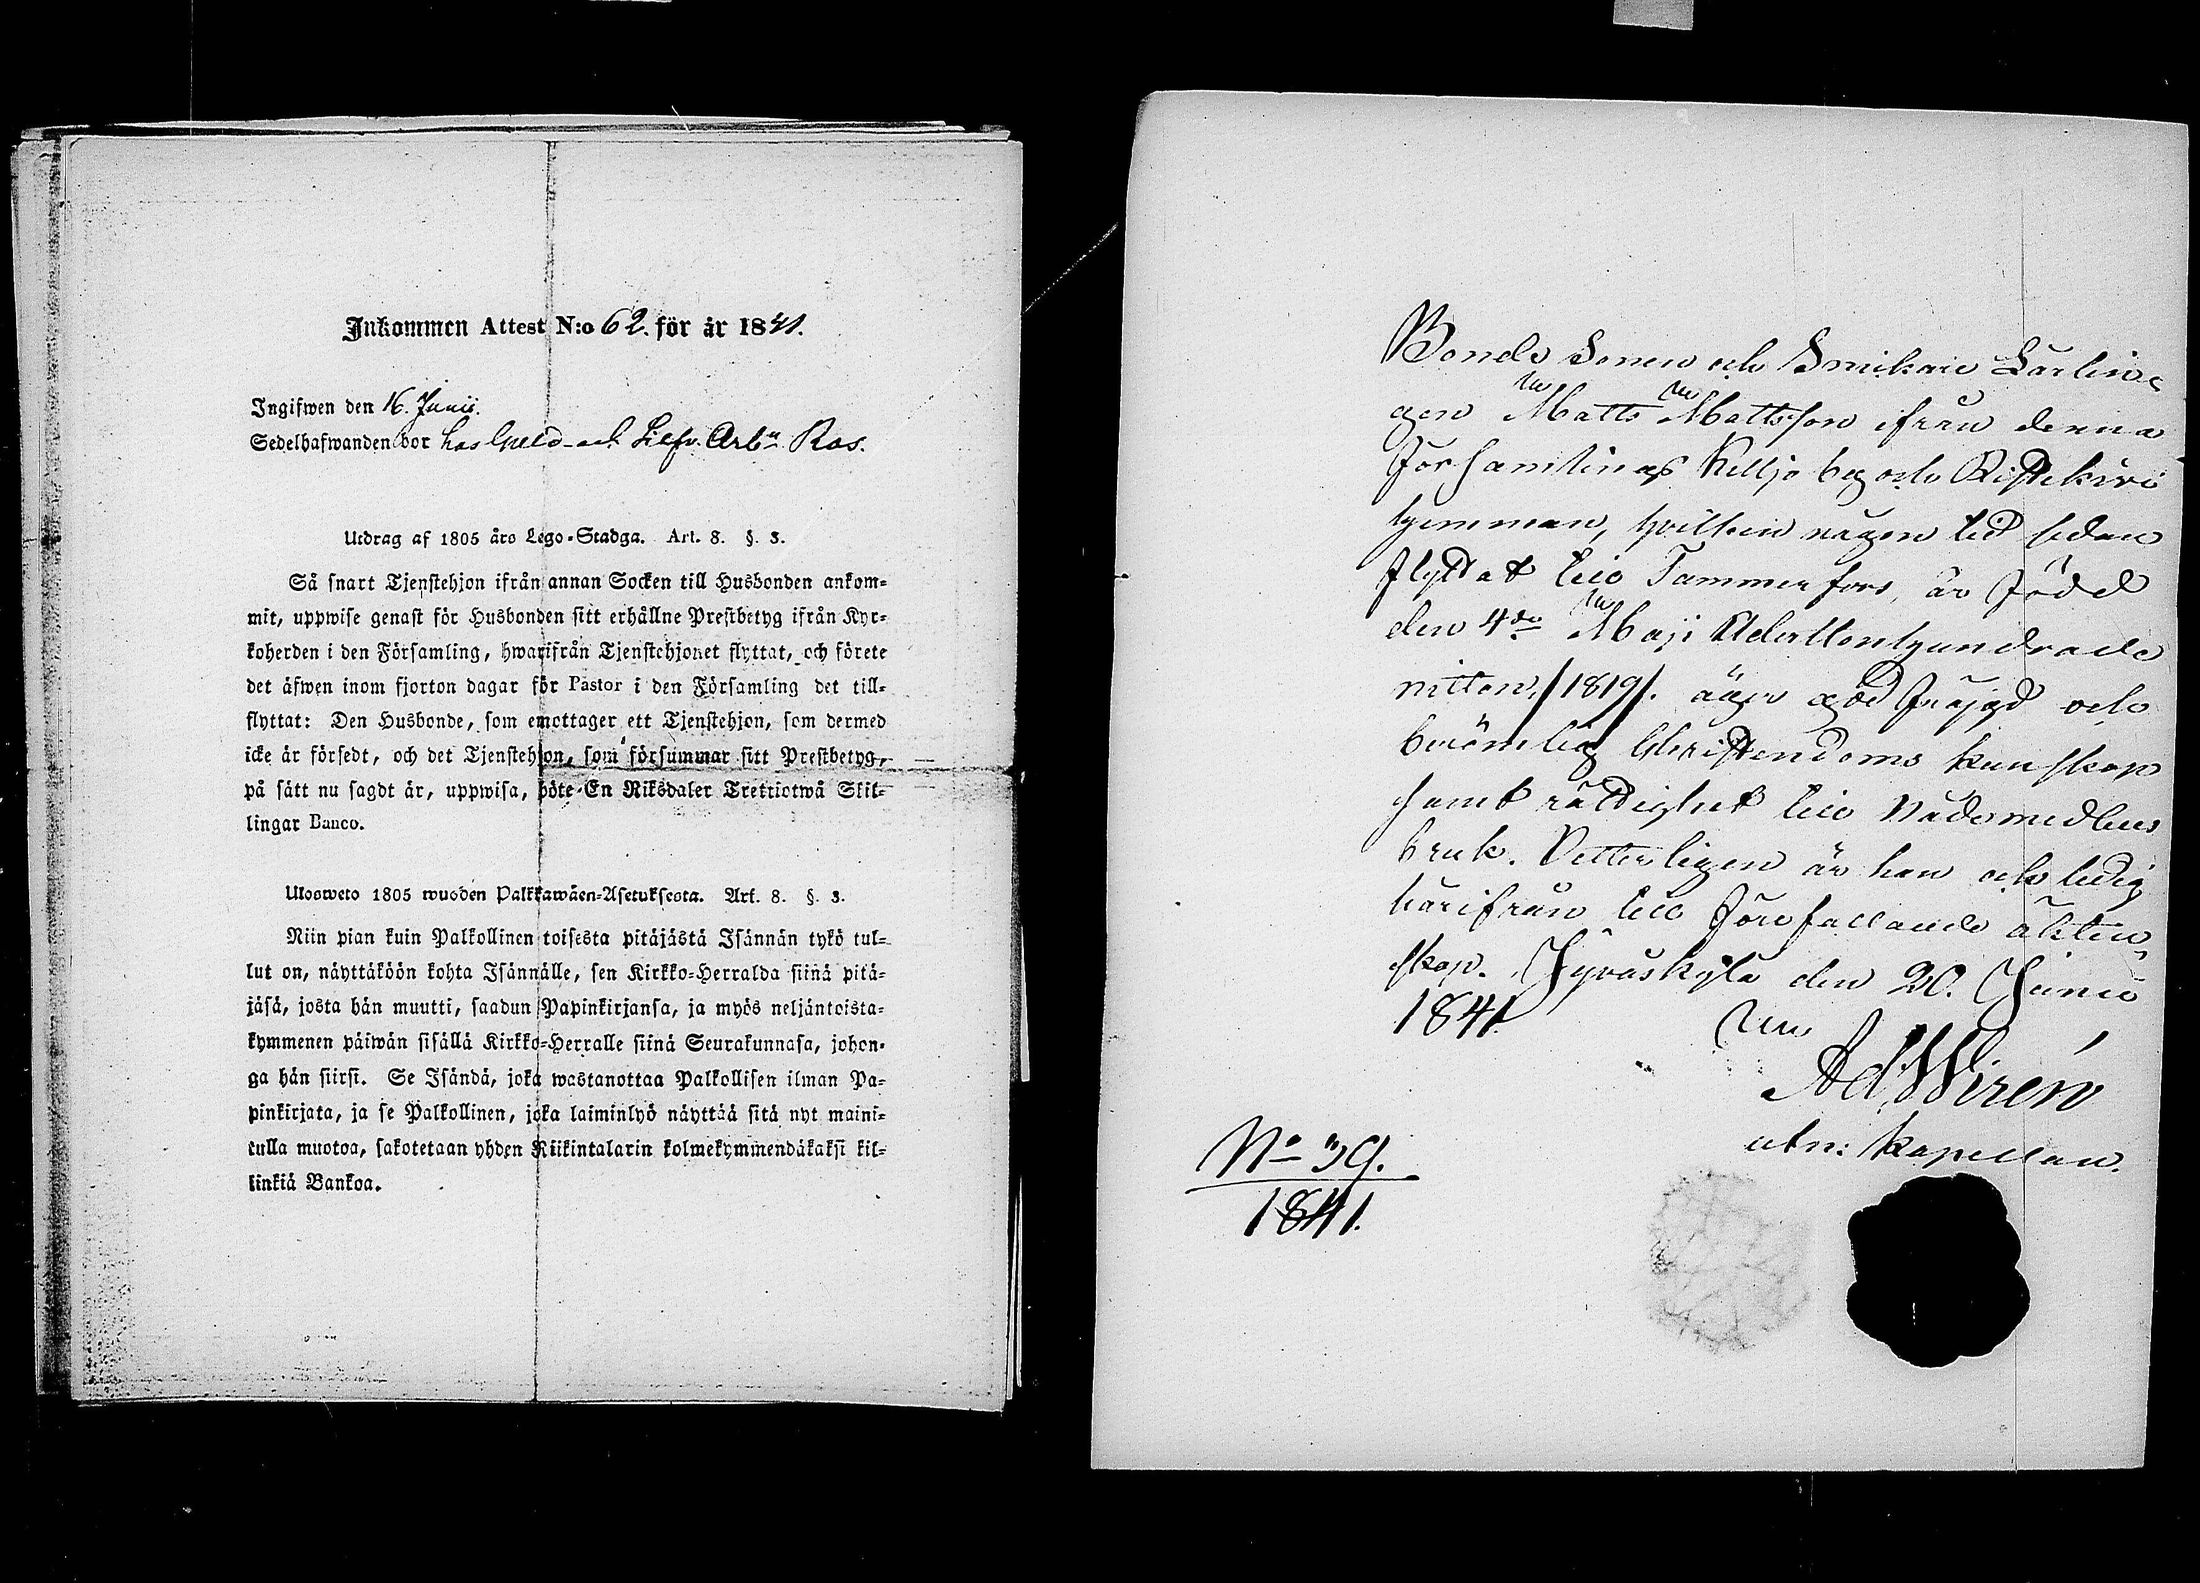 Inkommen Attest N:o 62. för år 1841.
Ingifwen den 16. Junii.
Sedelhafwanden bor hos Guld- och Silfv. Arb:n Ros.
Utdrag af 1805 års Lego-Stadga. Art. 8. §. 3.
Så snart Tjenstehjon ifrån annan Socken till Husbonden ankom-
mit, uppwise genast för Husbonden sitt erhållne Prestbetyg ifrån Kyr-
koherden i den Församling, hwarifrån Tjenstehjonet flyttat, och förete
det äfwen inom fjorton dagar för Pastor i den Församling det till-
flyttat: Den Husbonde, som emottager ett Tjenstehjon, som dermed
icke är försedt, och det Tjenstehjon, som försummar sitt Prestbetyg,
på sätt nu sagdt är, uppwisa, böte En Riksdaler Trettiotwå Skil-
lingar Banco.
Ulosweto 1805 wuoden Palkkawäen-Asetuksesta. Art. 8. §. 3.
Niin pian kuin Palkollinen toisesta pitäjästä Isännän tykö tul-
lut on, näyttäköön kohta Isännälle, sen Kirkko-Herralda siinä pitä-
jäsä, josta hän muutti, saadun Papinkirjansa, ja myös neljäntoista-
kymmenen päiwän sisällä Kirkko-Herralle siinä Seurakunnasa, johon-
ga hän siirsi. Se Isändä, joka wastanottaa Palkollisen ilman Pa-
pinkirjata, ja se Palkollinen, joka laiminlyö näyttää sitä nyt maini-
tulla muotoa, sakotetaan yhden Riikintalarin kolmekymmendäkaksi kil-
linkiä Bankoa.
Bonde Sonen och Snickare Lärlin-
gen Matts Mattsson ifrån denna
Församlings Keljo by och Ristikivi
hemman, hvilken någon tid sedan
flyttat till Tammerfors, är född
den 4de Maji Adertonhundrade
nitton /1819/. äger god fräjd och
berömlig Christendoms kunskap
samt rättighet till Nådemedlens
bruk. Vetterligen är han och ledig
härifrån till förefallande äkten-
skap. Jyväskylä den 20. Junii
1841
Ad. Wirén
utn: Kapellan.
No 39.
1841.